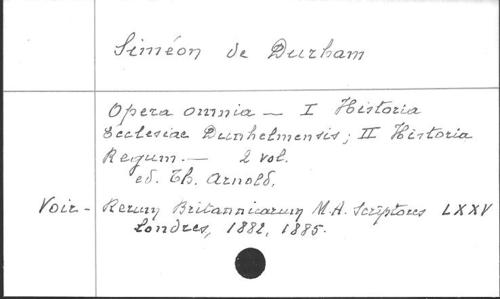 Siméon de Durham
Opera omnia — I Historia
Ecclesiae Dunhelmensis; II Historia
Regum. — 2 vol.
ed. Th. Arnold.
Voir - Rerum Britannicarum M.A. Scriptores LXXV
Londres, 1882, 1885.